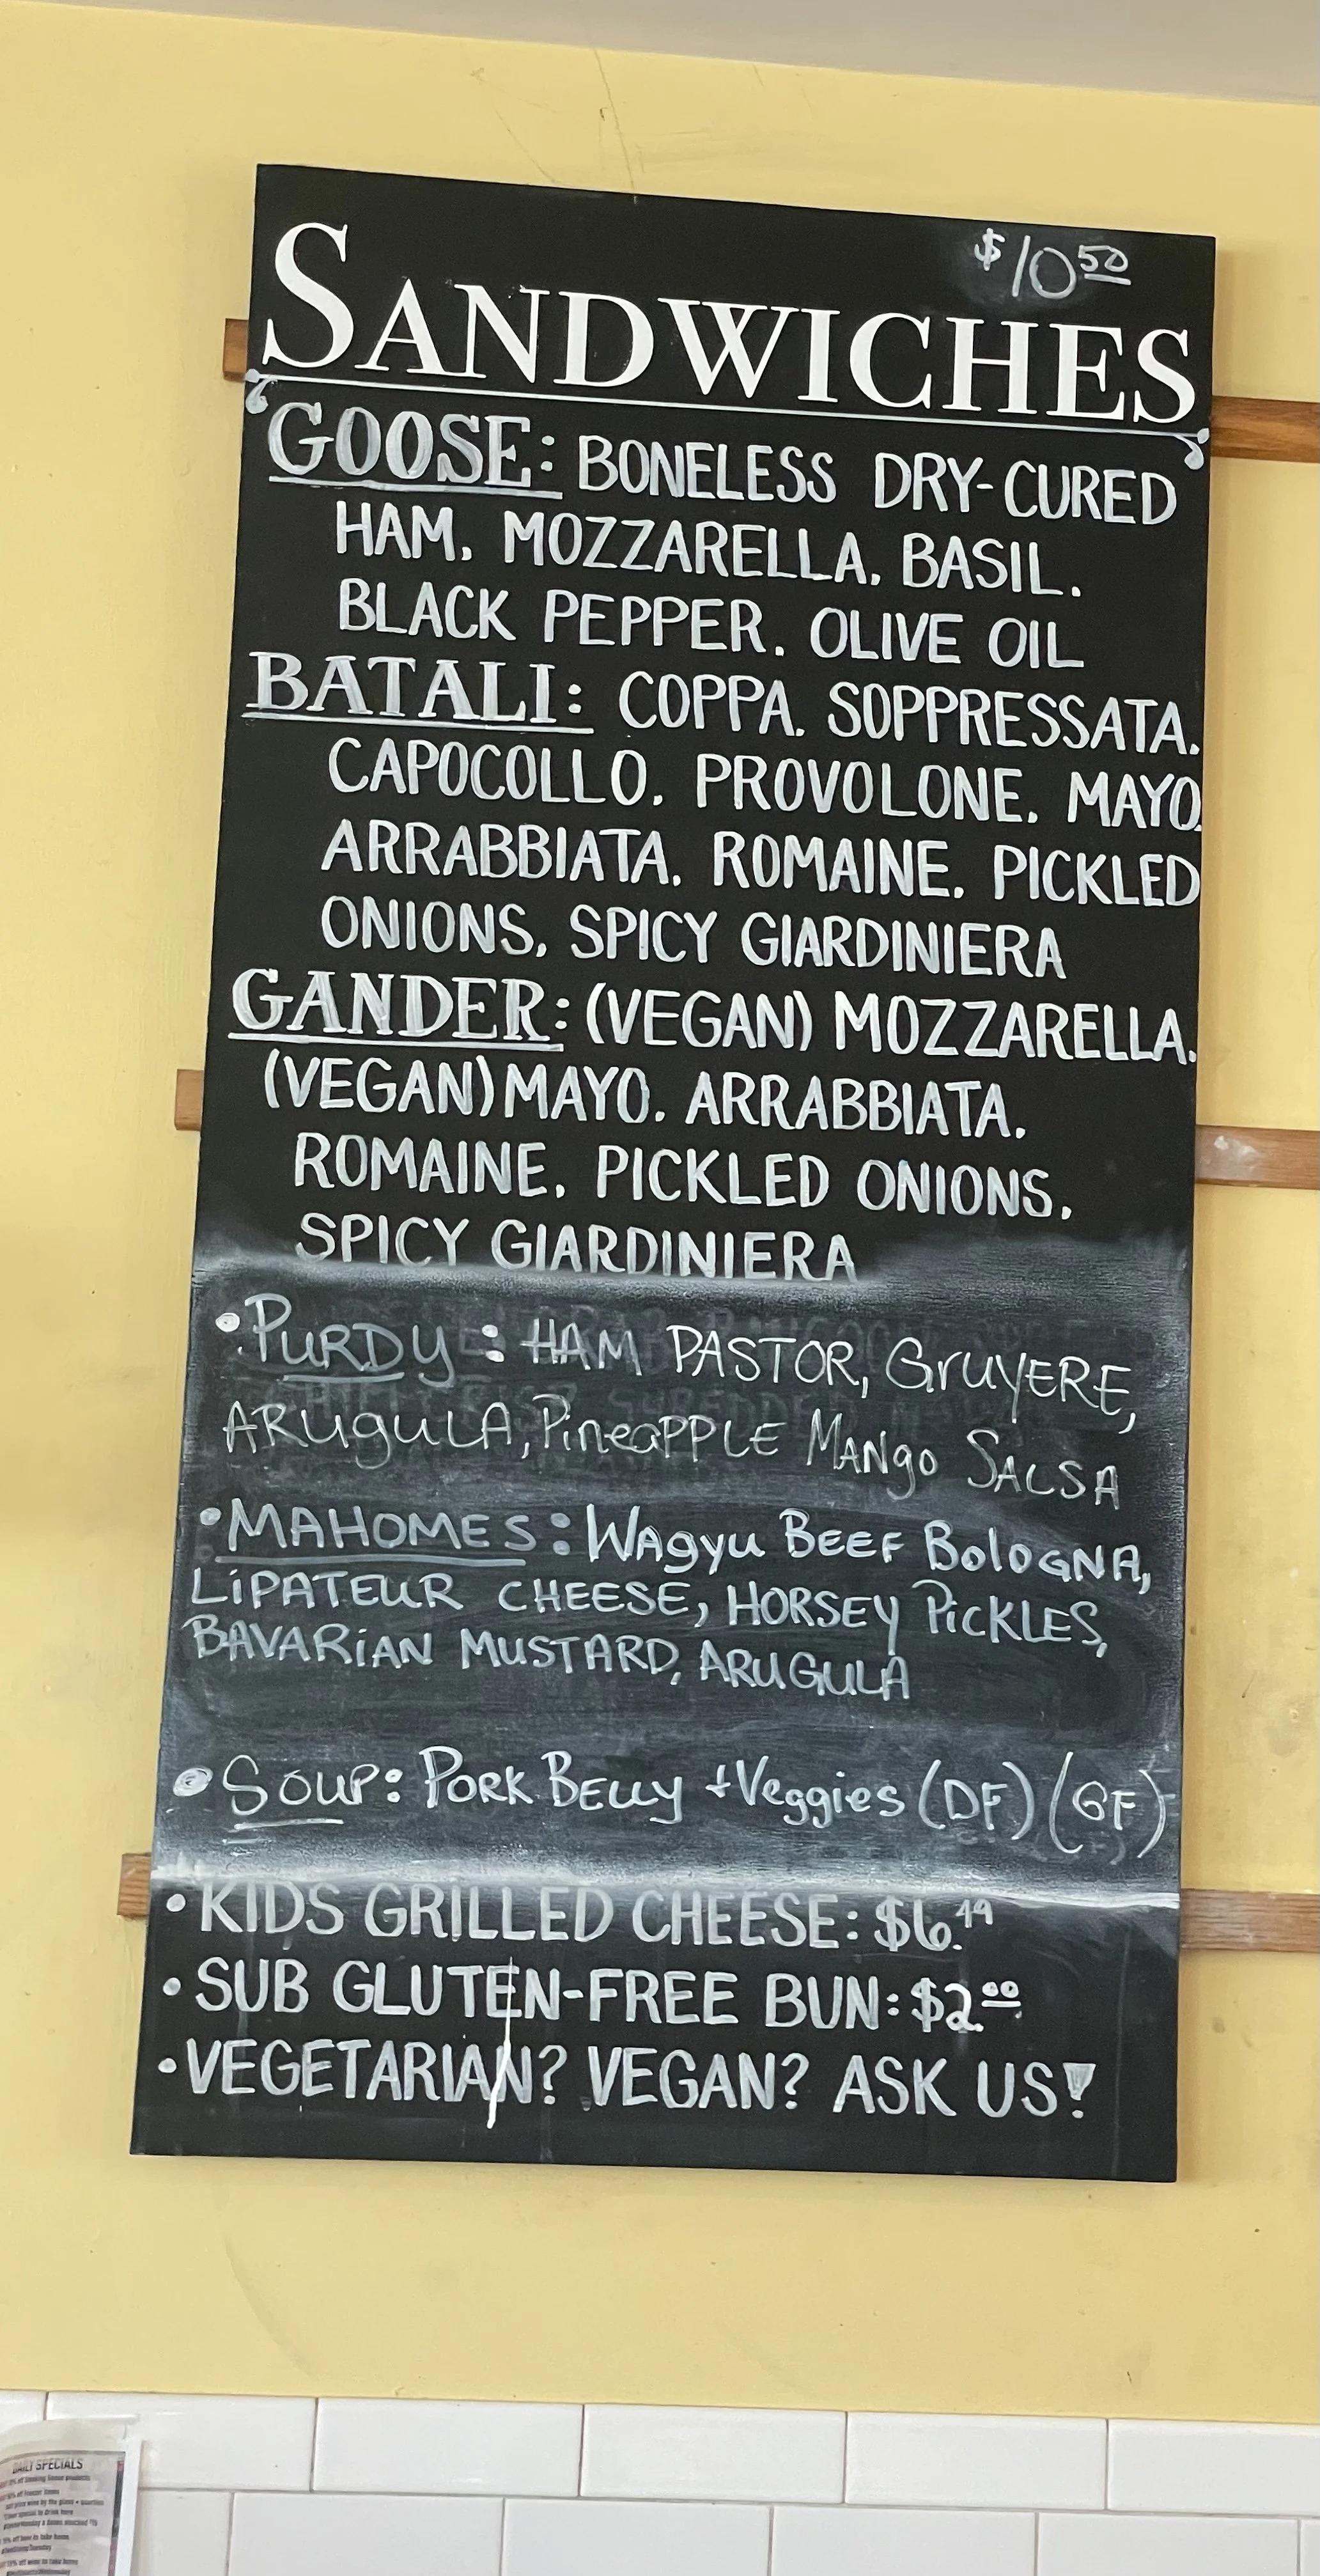 $10.50
SANDWICHES
GOOSE: BONELESS DRY-CURED
HAM. MOZZARELLA. BASIL.
BLACK PEPPER. OLIVE OIL
BATALI: COPPA. SOPPRESSATA.
CAPOCOLLO. PROVOLONE. MAYO.
ARRABBIATA. ROMAINE. PICKLED
ONIONS, SPICY GIARDINIERA
GANDER: (VEGAN) MOZZARELLA.
(VEGAN) MAYO. ARRABBIATA.
ROMAINE. PICKLED ONIONS.
SPICY GIARDINIERA
•PURDY: HAM PASTOR, GrUYERE,
ARuguLA, PineaPPLE MANgo SALSA
•MAHOMES: WAgyu BEEF BOlOGNA,
LiPATEUR CHEESE, HORSEY PiCKLES,
BAVARiAN MUSTARD, ARUGULA
•SOUP: PORK BELLY +Veggies (DF) (GF)
•KIDS GRILLED CHEESE: $6.49
•SUB GLUTEN-FREE BUN: $2.00
•VEGETARIAN? VEGAN? ASK US!
DAILY SPECIALS